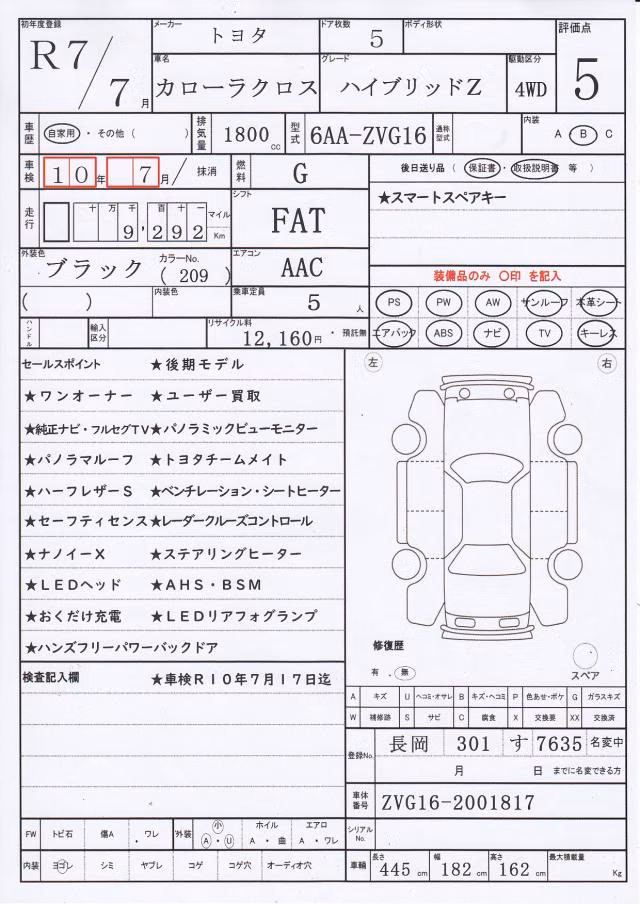 初年度登録 R7/7月 メーカー トヨタ ドア枚数 5 ボディ形状 評価点 5
車名 カローラクロス グレード ハイブリッドZ 駆動区分 4WD
車歴 自家用・その他（ ） 排気量 1800cc 型式 6AA-ZVG16 通称型式 内装 A・B C
車検 10年 7月/ 抹消 燃料 G 後日送り品（保証書・取扱説明書 等）
走行 十万千百十一 9,292 マイル Km シフト FAT ★スマートスペアキー
外装色 ブラック カラーNo.（209） エアコン AAC 装備品のみ 〇印 を記入
（ ） 内装色 乗車定員 5人 PS PW AW サンルーフ 本革シート
ハンドル 輸入区分 リサイクル料 12,160円・預託無 エアバック ABS ナビ TV キーレス
セールスポイント ★後期モデル 左 右
★ワンオーナー ★ユーザー買取
★純正ナビ・フルセグTV★パノラミックビューモニター
★パノラマルーフ ★トヨタチームメイト
★ハーフレザーS ★ベンチレーション・シートヒーター
★セーフティセンス★レーダークルーズコントロール
★ナノイーX ★ステアリングヒーター
★LEDヘッド ★AHS・BSM
★おくだけ充電 ★LEDリアフォグランプ
★ハンズフリーパワーバックドア
修復歴
有．無 スペア
検査記入欄 ★車検R10年7月17日迄
A キズ U ヘコミ・オサレ B キズ・ヘコミ P 色あせ・ボケ G ガラスキズ
W 補修跡 S サビ C 腐食 X 交換要 XX 交換済
登録No. 長岡 301 す 7635 名変中
月 日 までに名変できる方
車体番号 ZVG16-2001817
FW トビ石 傷A ・ワレ 外装 小 A・U ホイル A・曲 エアロ A・ワレ シリアルNo.
内装 ヨゴレ シミ ヤブレ コゲ コゲ穴 オーディオ穴 車輌 長さ 445cm 幅 182cm 高さ 162cm 最大積載量 Kg